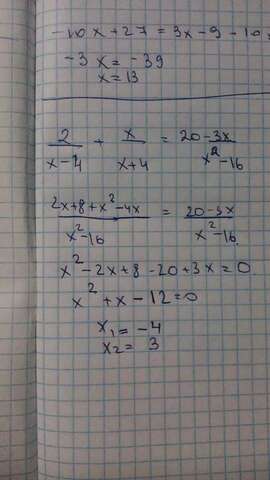 -10x+27=3x-9-10
-3x=-39
x=13
2/(x-4) + x/(x+4) = (20-3x)/(x²-16)
(2x+8+x²-4x)/(x²-16) = (20-3x)/(x²-16)
x²-2x+8-20+3x=0
x²+x-12=0
x₁=-4
x₂=3